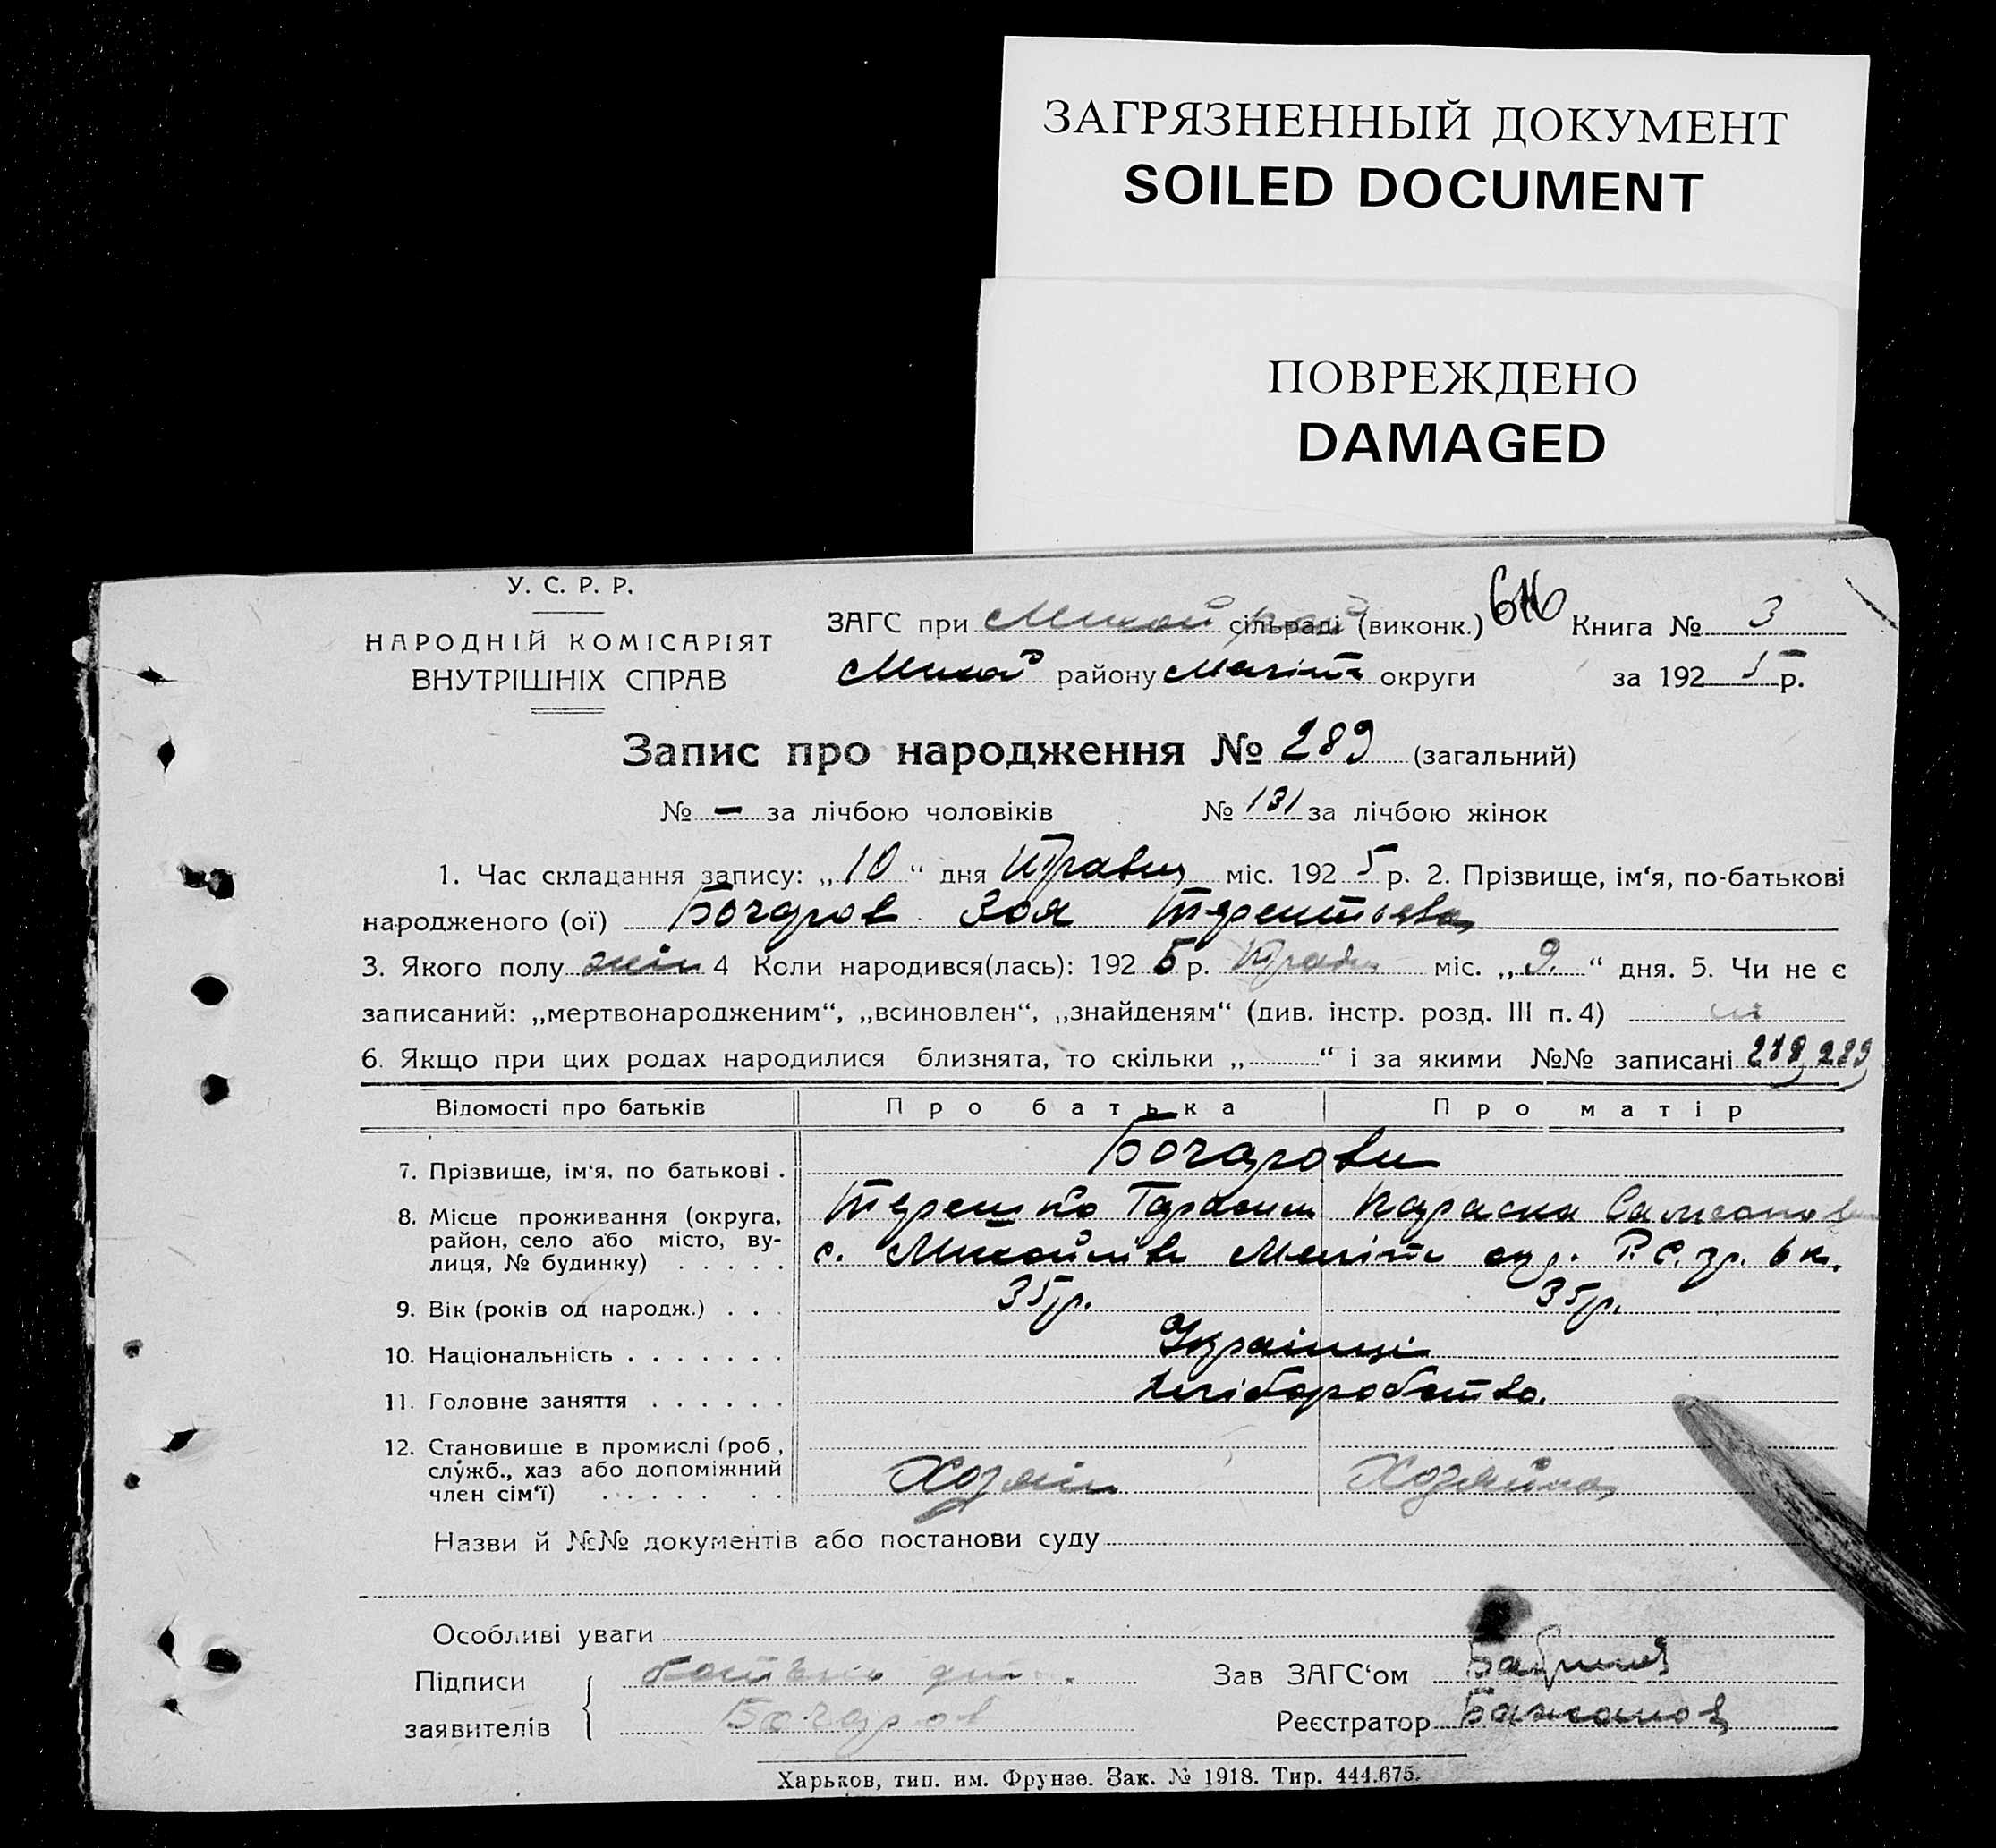 ЗАГРЯЗНЕННЫЙ ДОКУМЕНТ
SOILED DOCUMENT
ПОВРЕЖДЕНО
DAMAGED
У. С. Р. Р.
НАРОДНІЙ КОМІСАРІЯТ
ВНУТРІШНІХ СПРАВ
ЗАГС при сільраді (виконк.) Книга № 3
району Меліт округи за 192 5 р.
Запис про народження № 289 (загальний)
№ — за лічбою чоловіків № 131 за лічбою жінок
1. Час складання запису: „ 10 “ дня Травня міс. 192 5 р. 2. Прізвище, ім‘я, по-батькові
народженого (ої) Бочаров Зоя Терентьевна
3. Якого полу жін 4 Коли народився(лась): 192 5 р. Травня міс. „ 9. “ дня. 5. Чи не є
записаний: „мертвонародженим“, „всиновлен“, „знайденям“ (див. інстр. розд. III п. 4) ні
6. Якщо при цих родах народилися близнята, то скільки „ “ і за якими №№ записані 289
Відомості про батьків Про батька Про матір
7. Прізвище, ім‘я, по батькові . Бочарови
8. Місце проживання (округа, район, село або місто, вулиця, № будинку) . . . . . Параска
с. Михайлівк Меліт окр.
9. Вік (років од народж.) . . . 35 р. 35 р.
10. Національність . . . . . . . Українці
11. Головне заняття . . . . . . Хліборобство.
12. Становище в промислі (роб., служб., хаз або допоміжний член сім‘ї) . . . . . . . Хозяін Хозяйка
Назви й №№ документів або постанови суду
Особливі уваги
Підписи заявителів Бочаров
Зав ЗАГС‘ом
Реєстратор Бажанов
Харьков, тип. им. Фрунзе. Зак. № 1918. Тир. 444.675.